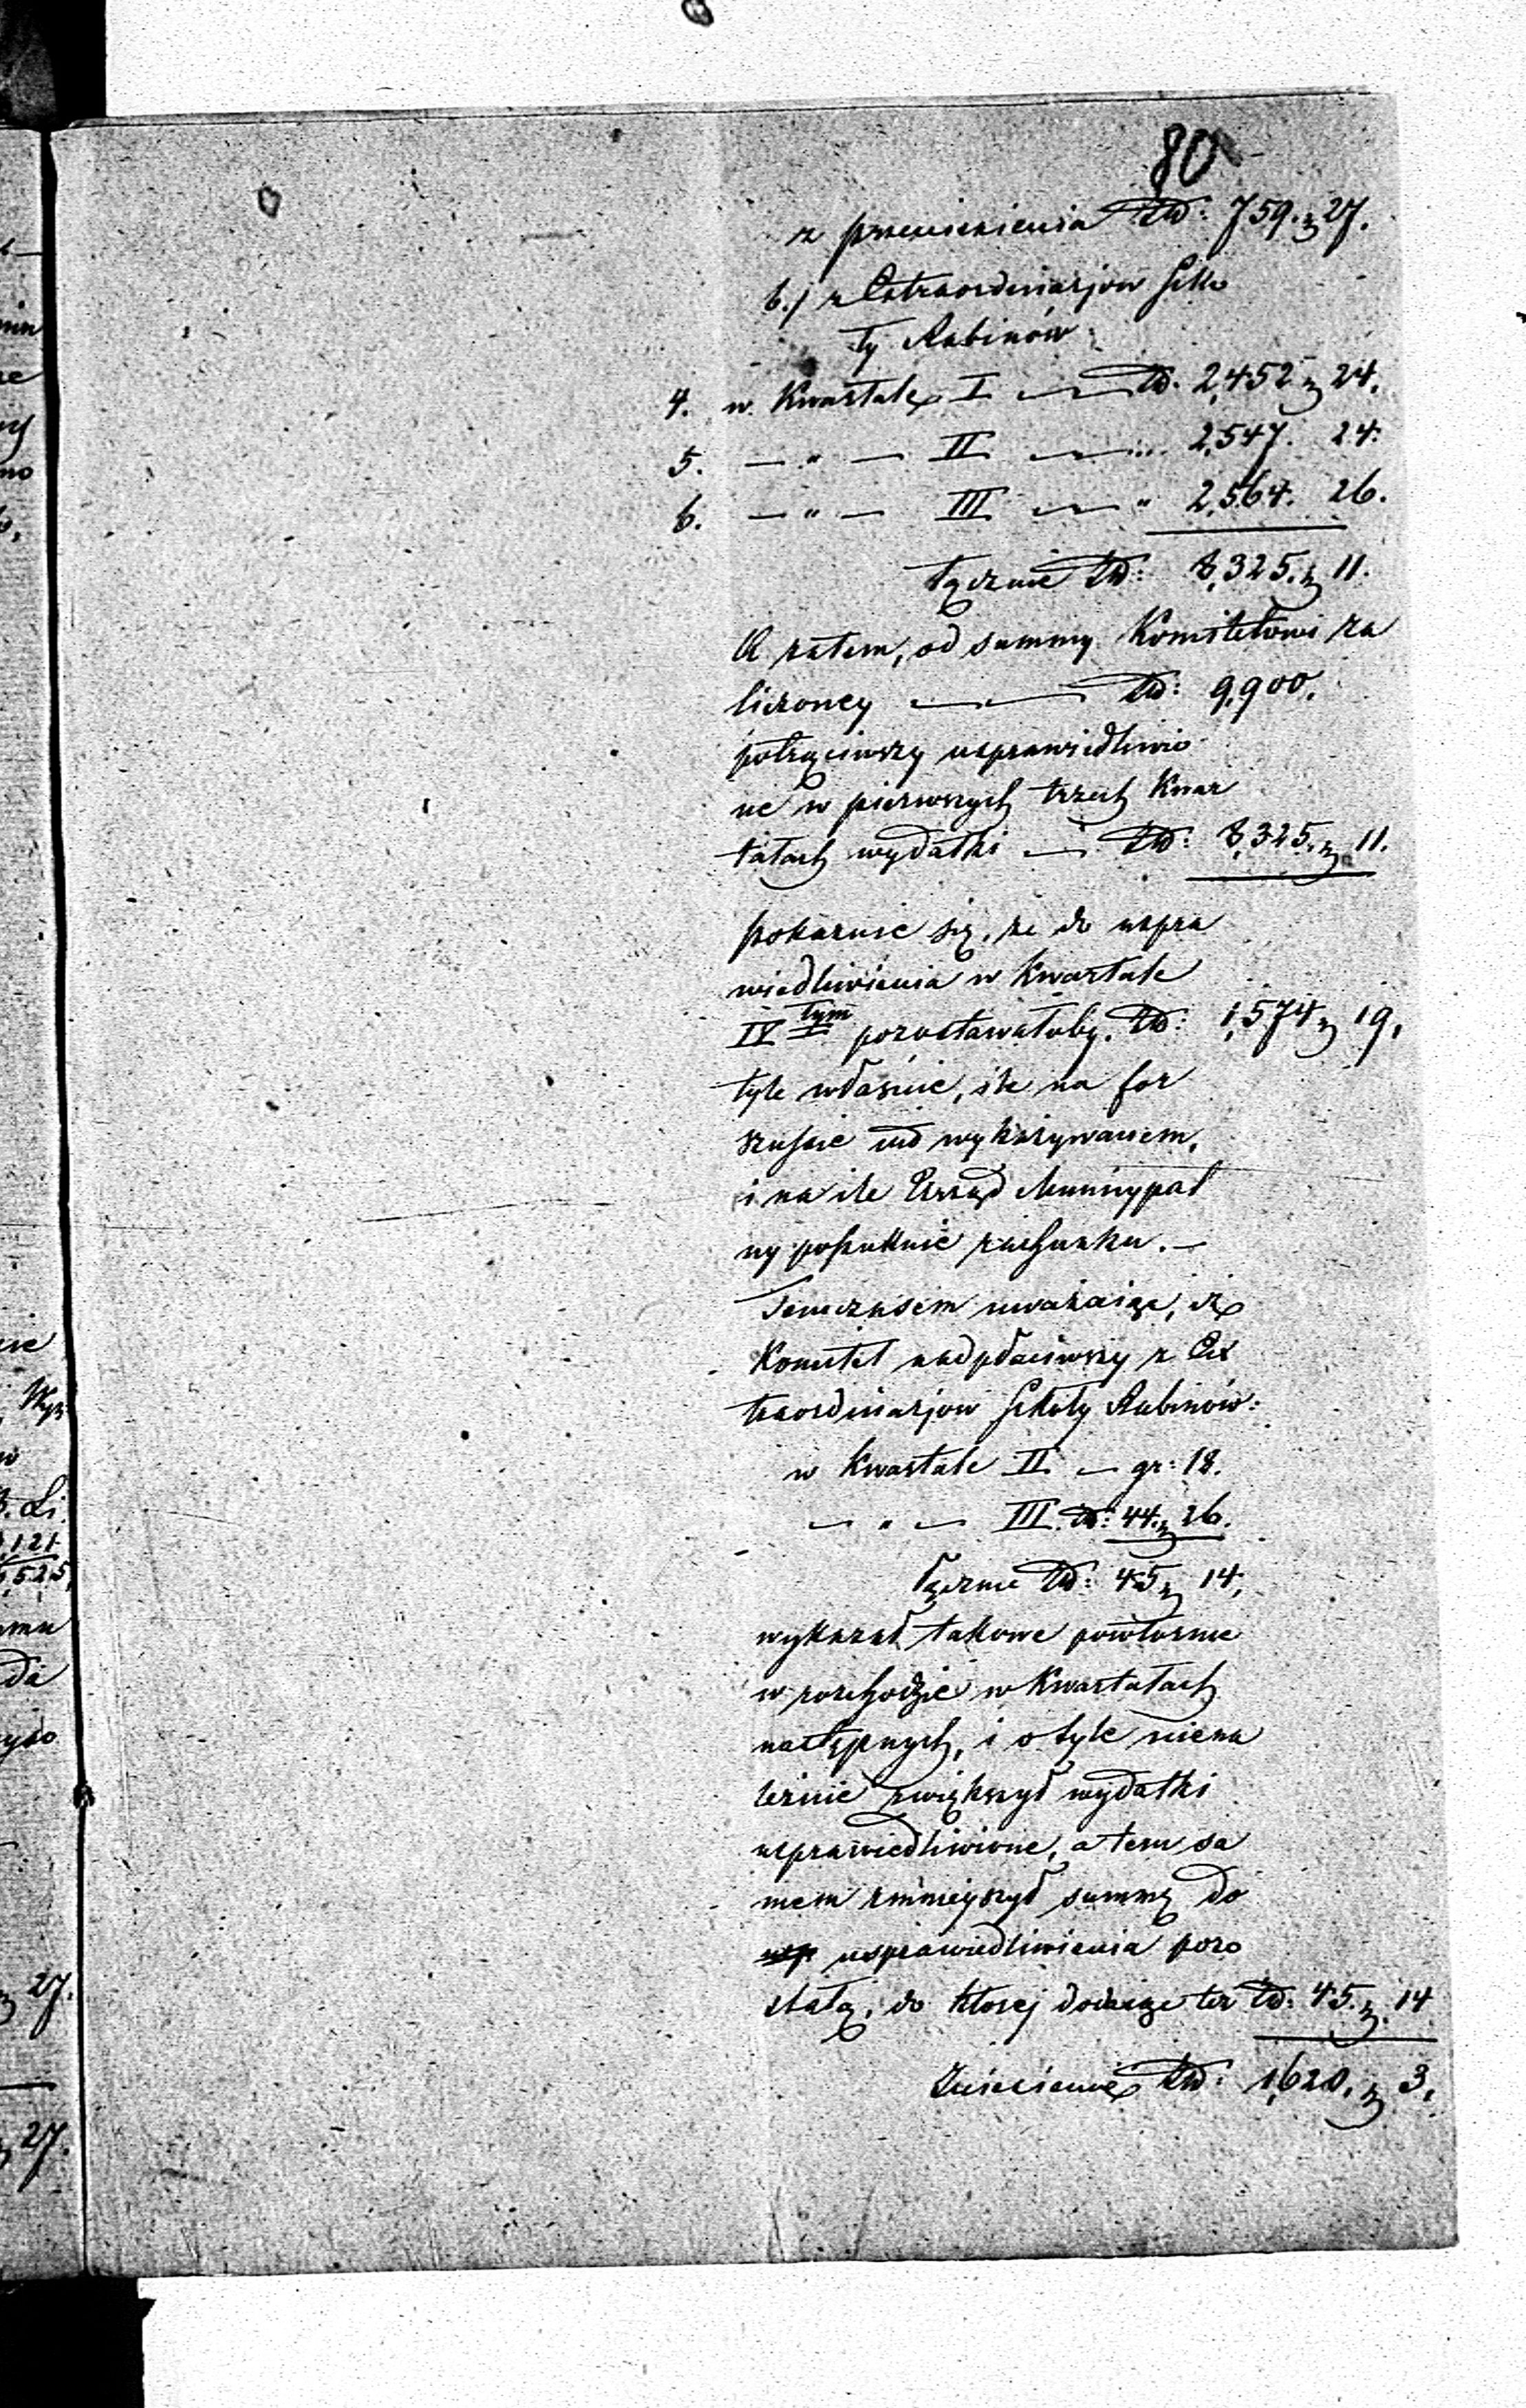 80
z przeniesienia Złp: 759. g 27.
b./ z Extraordinarjow Szko
ły Rabinów:
4. w Kwartale I — Złp. 2,452 g 24.
5. — " — II — " 2,547. 24.
6. — " — III — " 2,564. 26.
łącznie Złp: 8,325. g 11.
A zatem, od summy Komitetowi za
liczoney — Złp: 9,900.
potrąciwszy usprawiedliwio
ne w pierwszych trzech Kwar
tałach wydatki — Złp: 8,325. g 11.
pokazuie się, że do uspra
wiedliwienia w Kwartale
IV tym pozostawałoby. Złp: 1,574 g 19.
tyle właśnie, ile na for
szusie iest wykazywanem,
i na ile Urząd Municypal
ny poszukuie rachunku. —
Tymczasem uważaiąc, iż
Komitet nadpłaciwszy z Ex
traordinarjow Szkoły Rabinów:
w Kwartale II — gr: 18.
— " — III. Złp: 44. g 26.
łącznie Złp: 45 g 14,
wykazał takowe powtornie
w rozchodzie w Kwartałach
następnych, i o tyle niena
leżnie zwiększył wydatki
usprawiedliwione, a tem sa
mem zmnieyszył summę do
usprawiedliwienia pozo
stałą, do ktorej dodaiąc te Złp: 45. g. 14
Złp: 1,620. g 3.